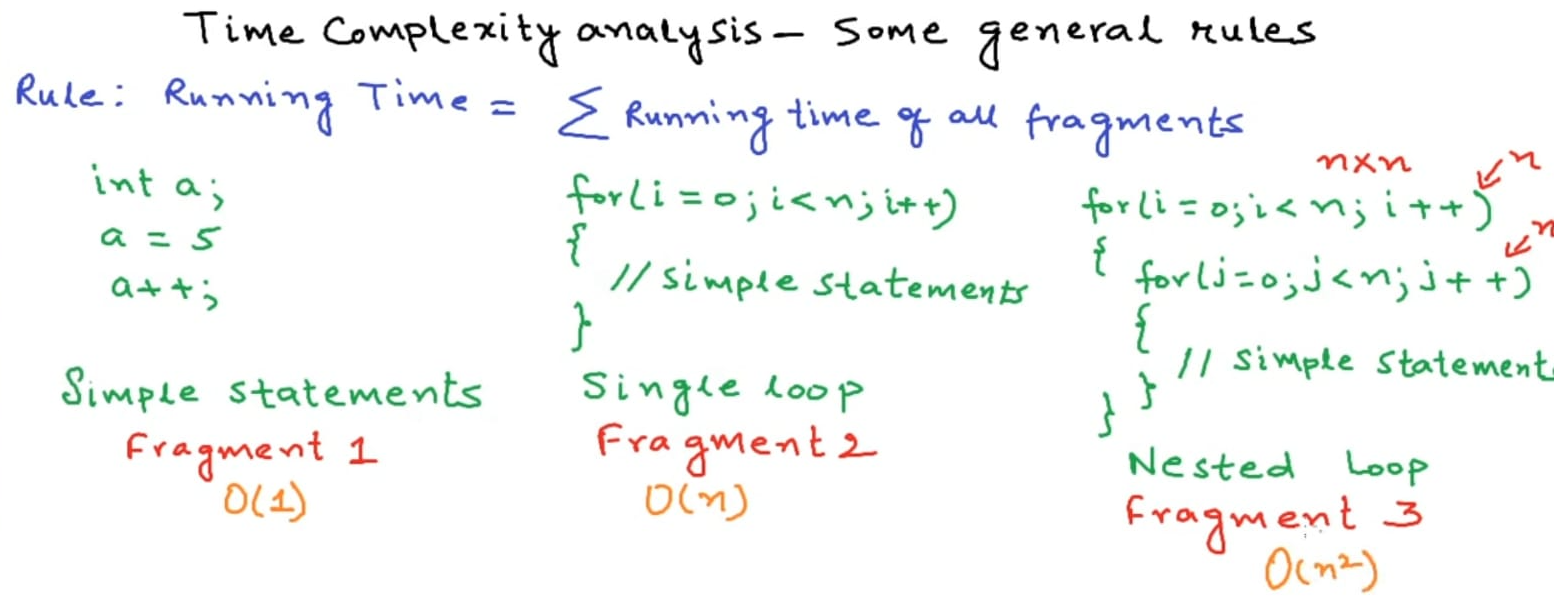 Time Complexity analysis – Some general rules
Rule: Running Time = Σ Running time of all fragments
int a;
a = 5
a++;
Simple statements
Fragment 1
O(1)
for(i=0;i<n;i++)
{
// simple statements
}
Single loop
Fragment 2
O(n)
n×n
for(i=0;i<n;i++) ↙n
{
for(j=0;j<n;j++) ↙n
{
// simple statement
}
}
Nested Loop
Fragment 3
O(n²)